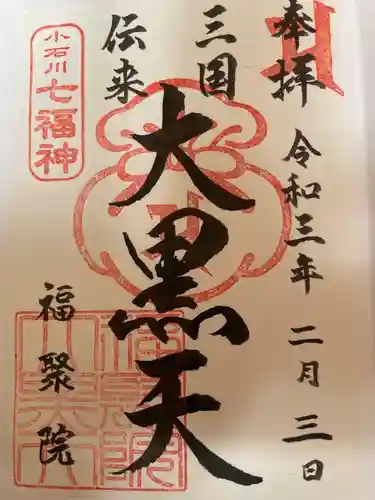 奉拝
令和三年二月三日
三国
伝来
大黒天
小石川
七福神
福聚院